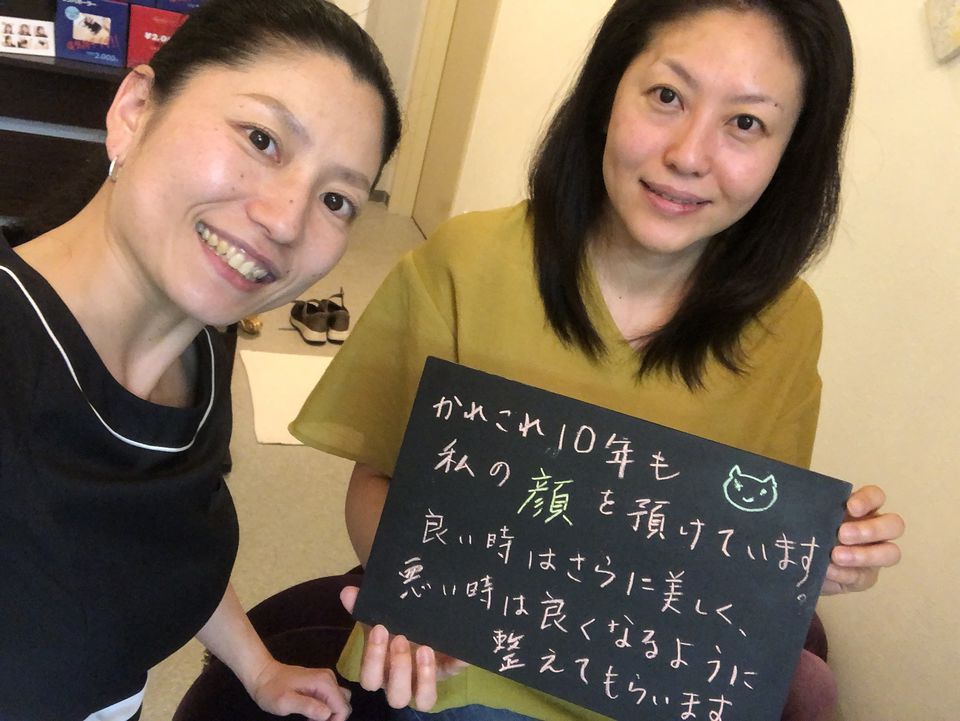 ¥2,000
かれこれ10年も
私の顔を預けています。
良い時はさらに美しく、
悪い時は良くなるように
整えてもらいます